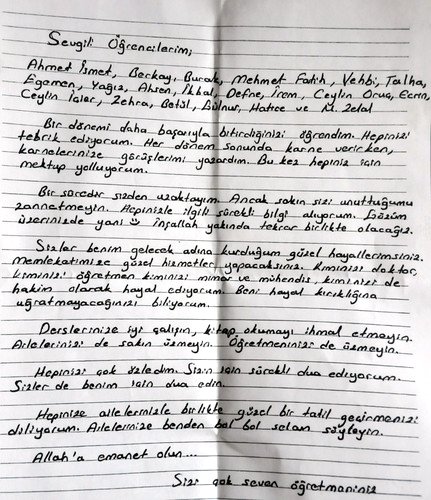 Sevgili Öğrencilerim;
Ahmet İsmet, Berkay, Burak, Mehmet Fatih, Vehbi, Talha,
Egemen, Yağız, Ahsen, İkbal, Defne, İrem, Ceylin Oruç, Ecrin,
Ceylin İçler, Zehra, Betül, Gülnur, Hatice ve M. Zelal
Bir dönemi daha başarıyla bitirdiğinizi öğrendim. Hepinizi
tebrik ediyorum. Her dönem sonunda karne verirken,
karnelerinize görüşlerimi yazardım. Bu kez hepiniz için
mektup yolluyorum.
Bir süredir sizden uzaktayım. Ancak sakın sizi unuttuğumu
zannetmeyin. Hepinizle ilgili sürekli bilgi alıyorum. Gözüm
üzerinizde yani 😊 İnşallah yakında tekrar birlikte olacağız.
Sizler benim gelecek adına kurduğum güzel hayallerimsiniz.
Memleketimize güzel hizmetler yapacaksınız. Kiminizi doktor,
kiminizi öğretmen kiminizi mimar ve mühendis, kiminizi de
hakim olarak hayal ediyorum. Beni hayal kırıklığına
uğratmayacağınızı biliyorum.
Derslerinize iyi çalışın, kitap okumayı ihmal etmeyin.
Ailelerinizi de sakın üzmeyin. Öğretmeninizi de üzmeyin.
Hepinizi çok özledim. Sizin için sürekli dua ediyorum.
Sizler de benim için dua edin.
Hepinize ailelerinizle birlikte güzel bir tatil geçirmenizi
diliyorum. Ailelerinize benden bol bol selam söyleyin.
Allah'a emanet olun...
Sizi çok seven öğretmeniniz